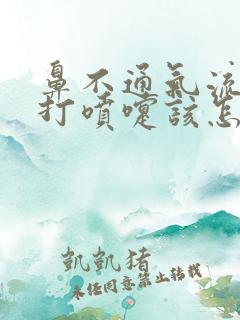 鼻不通氣流
打噴嚏該怎
凱凱猪
未经同意禁止转载